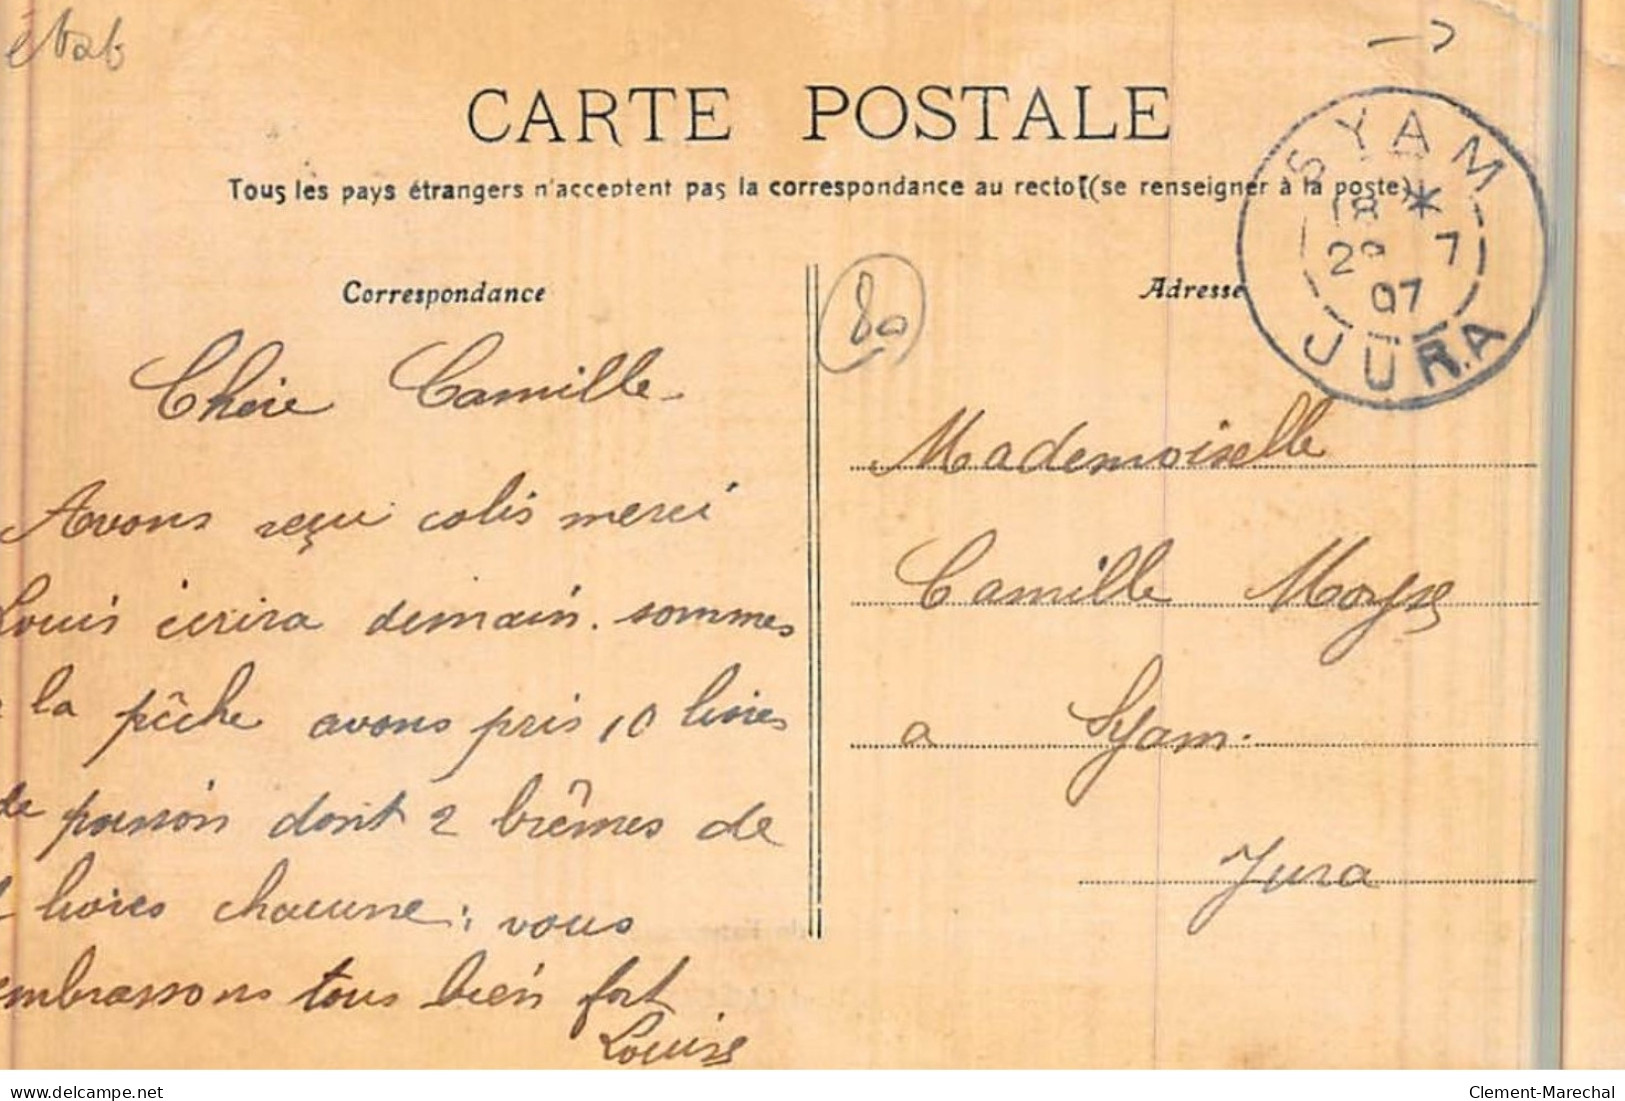 CARTE POSTALE
Tous les pays étrangers n'acceptent pas la correspondance au recto (se renseigner à la poste)
SYAM
18 *
7
07
JURA
Correspondance
Adresse
80
Chère Camille
Avons reçu colis merci
Louis écrira demain. sommes
la pêche avons pris 10 livres
de poisson dont 2 brêmes de
livres chacune; vous
embrassons tous bien fort
Louise
Mademoiselle
Camille
a Syam.
Jura
delcampe.net
Clement-Marechal